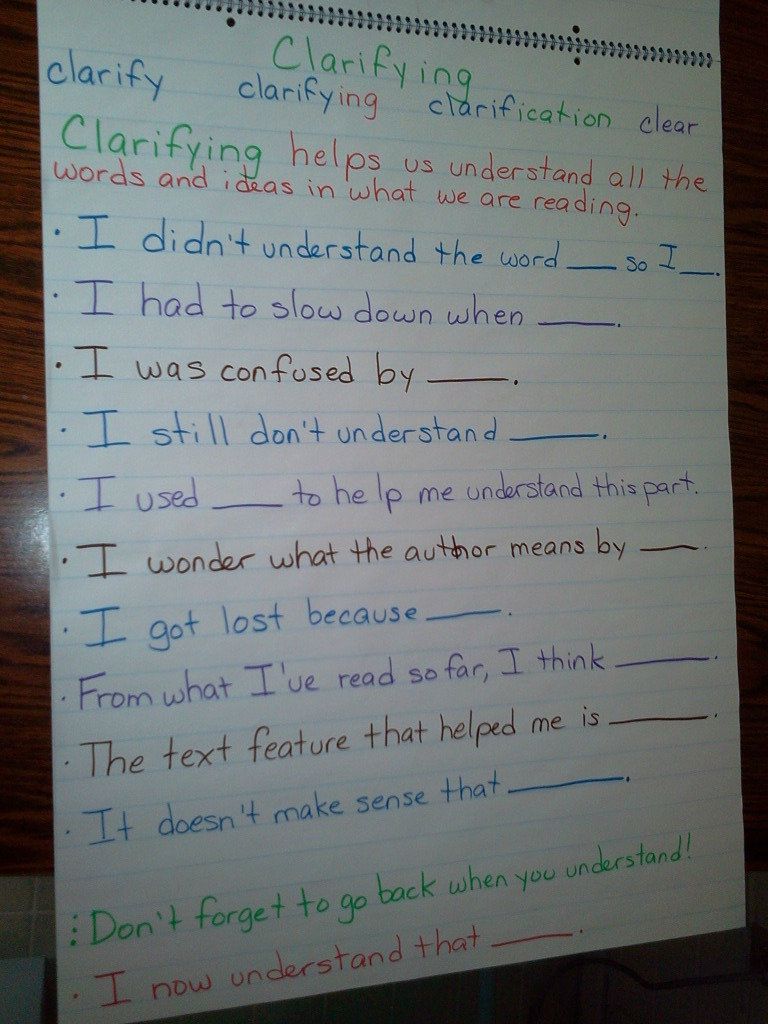 Clarifying
clarify clarifying clarification clear
Clarifying helps us understand all the
words and ideas in what we are reading.
· I didn't understand the word ___ so I ___.
· I had to slow down when ___.
· I was confused by ___.
· I still don't understand ___.
· I used ___ to help me understand this part.
· I wonder what the author means by ___.
· I got lost because ___.
· From what I've read so far, I think ___.
· The text feature that helped me is ___.
· It doesn't make sense that ___.
⋮ Don't forget to go back when you understand!
· I now understand that ___.